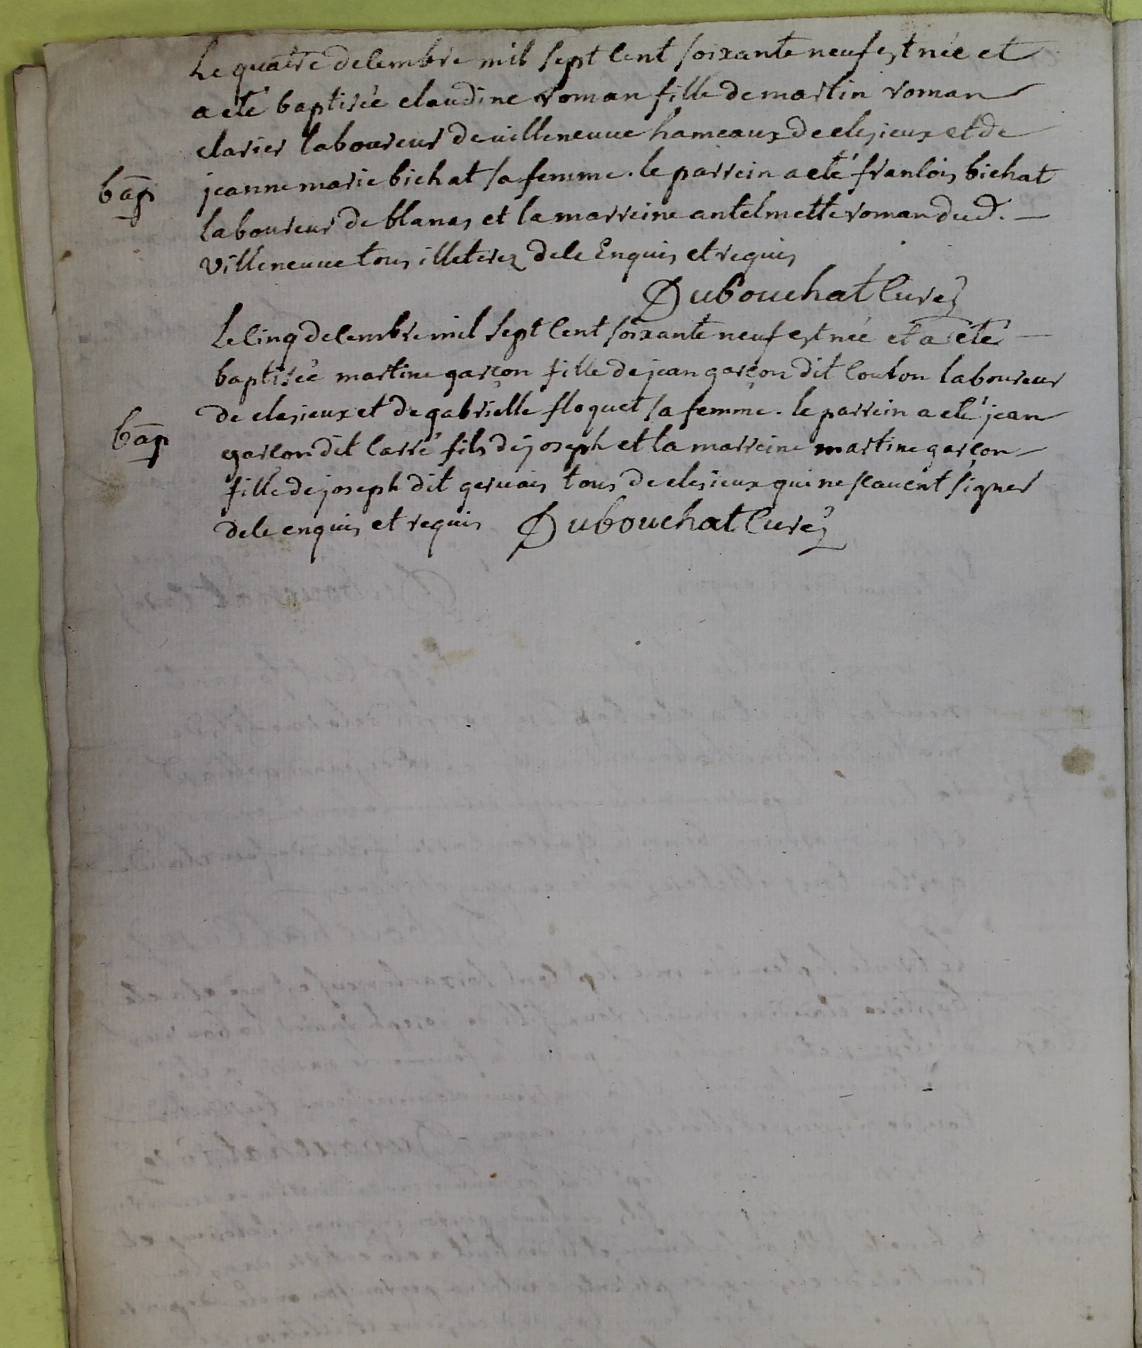 Le quatre decembre mil sept cent soixante neuf est née et
a eté baptisée claudine roman fille de martin roman
clarier laboureur de villeneuve hameaux de clesieux et de
bap jeanne marie bichat sa femme. le parrein a eté françois bichat
laboureur de blanas et la marreine antelmette roman dud.
villeneuve tous illeterez de ce Enquis et requis
Dubouchat Curé
Le cinq decembre mil sept cent soixante neuf est née et a eté
baptisée martine garçon fille de jean garçon dit coulon laboureur
de clesieux et de gabrielle floquet sa femme. le parrein a eté jean
bap garçon dit carré fils de joseph et la marreine martine garçon
fille de joseph dit gervais tous de clesieux qui ne scavent signer
de ce enquis et requis Dubouchat Curé